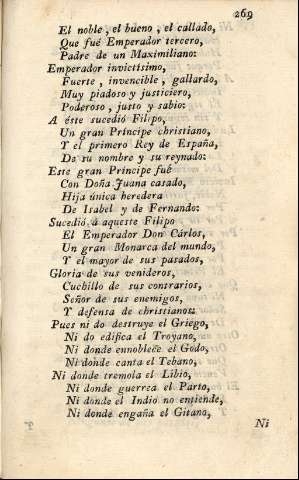 269
El noble, el bueno, el callado,
Que fué Emperador tercero,
Padre de un Maximiliano:
Emperador invictísimo,
Fuerte, invencible, gallardo,
Muy piadoso y justiciero,
Poderoso, justo y sabio:
A éste sucedió Filipo,
Un gran Príncipe christiano,
Y el primero Rey de España,
De su nombre y su reynado:
Este gran Príncipe fué
Con Doña Juana casado,
Hija única heredera
De Isabel y de Fernando:
Sucedió á aqueste Filipo
El Emperador Don Cárlos,
Un gran Monarca del mundo,
Y el mayor de sus pasados,
Gloria de sus venideros,
Cuchillo de sus contrarios,
Señor de sus enemigos,
Y defensa de christianos:
Pues ni do destruye el Griego,
Ni do edifica el Troyano,
Ni donde ennoblece el Godo,
Ni donde canta el Tebano,
Ni donde tremola el Libio,
Ni donde guerrea el Parto,
Ni donde el Indio no entiende,
Ni donde engaña el Gitano,
Ni